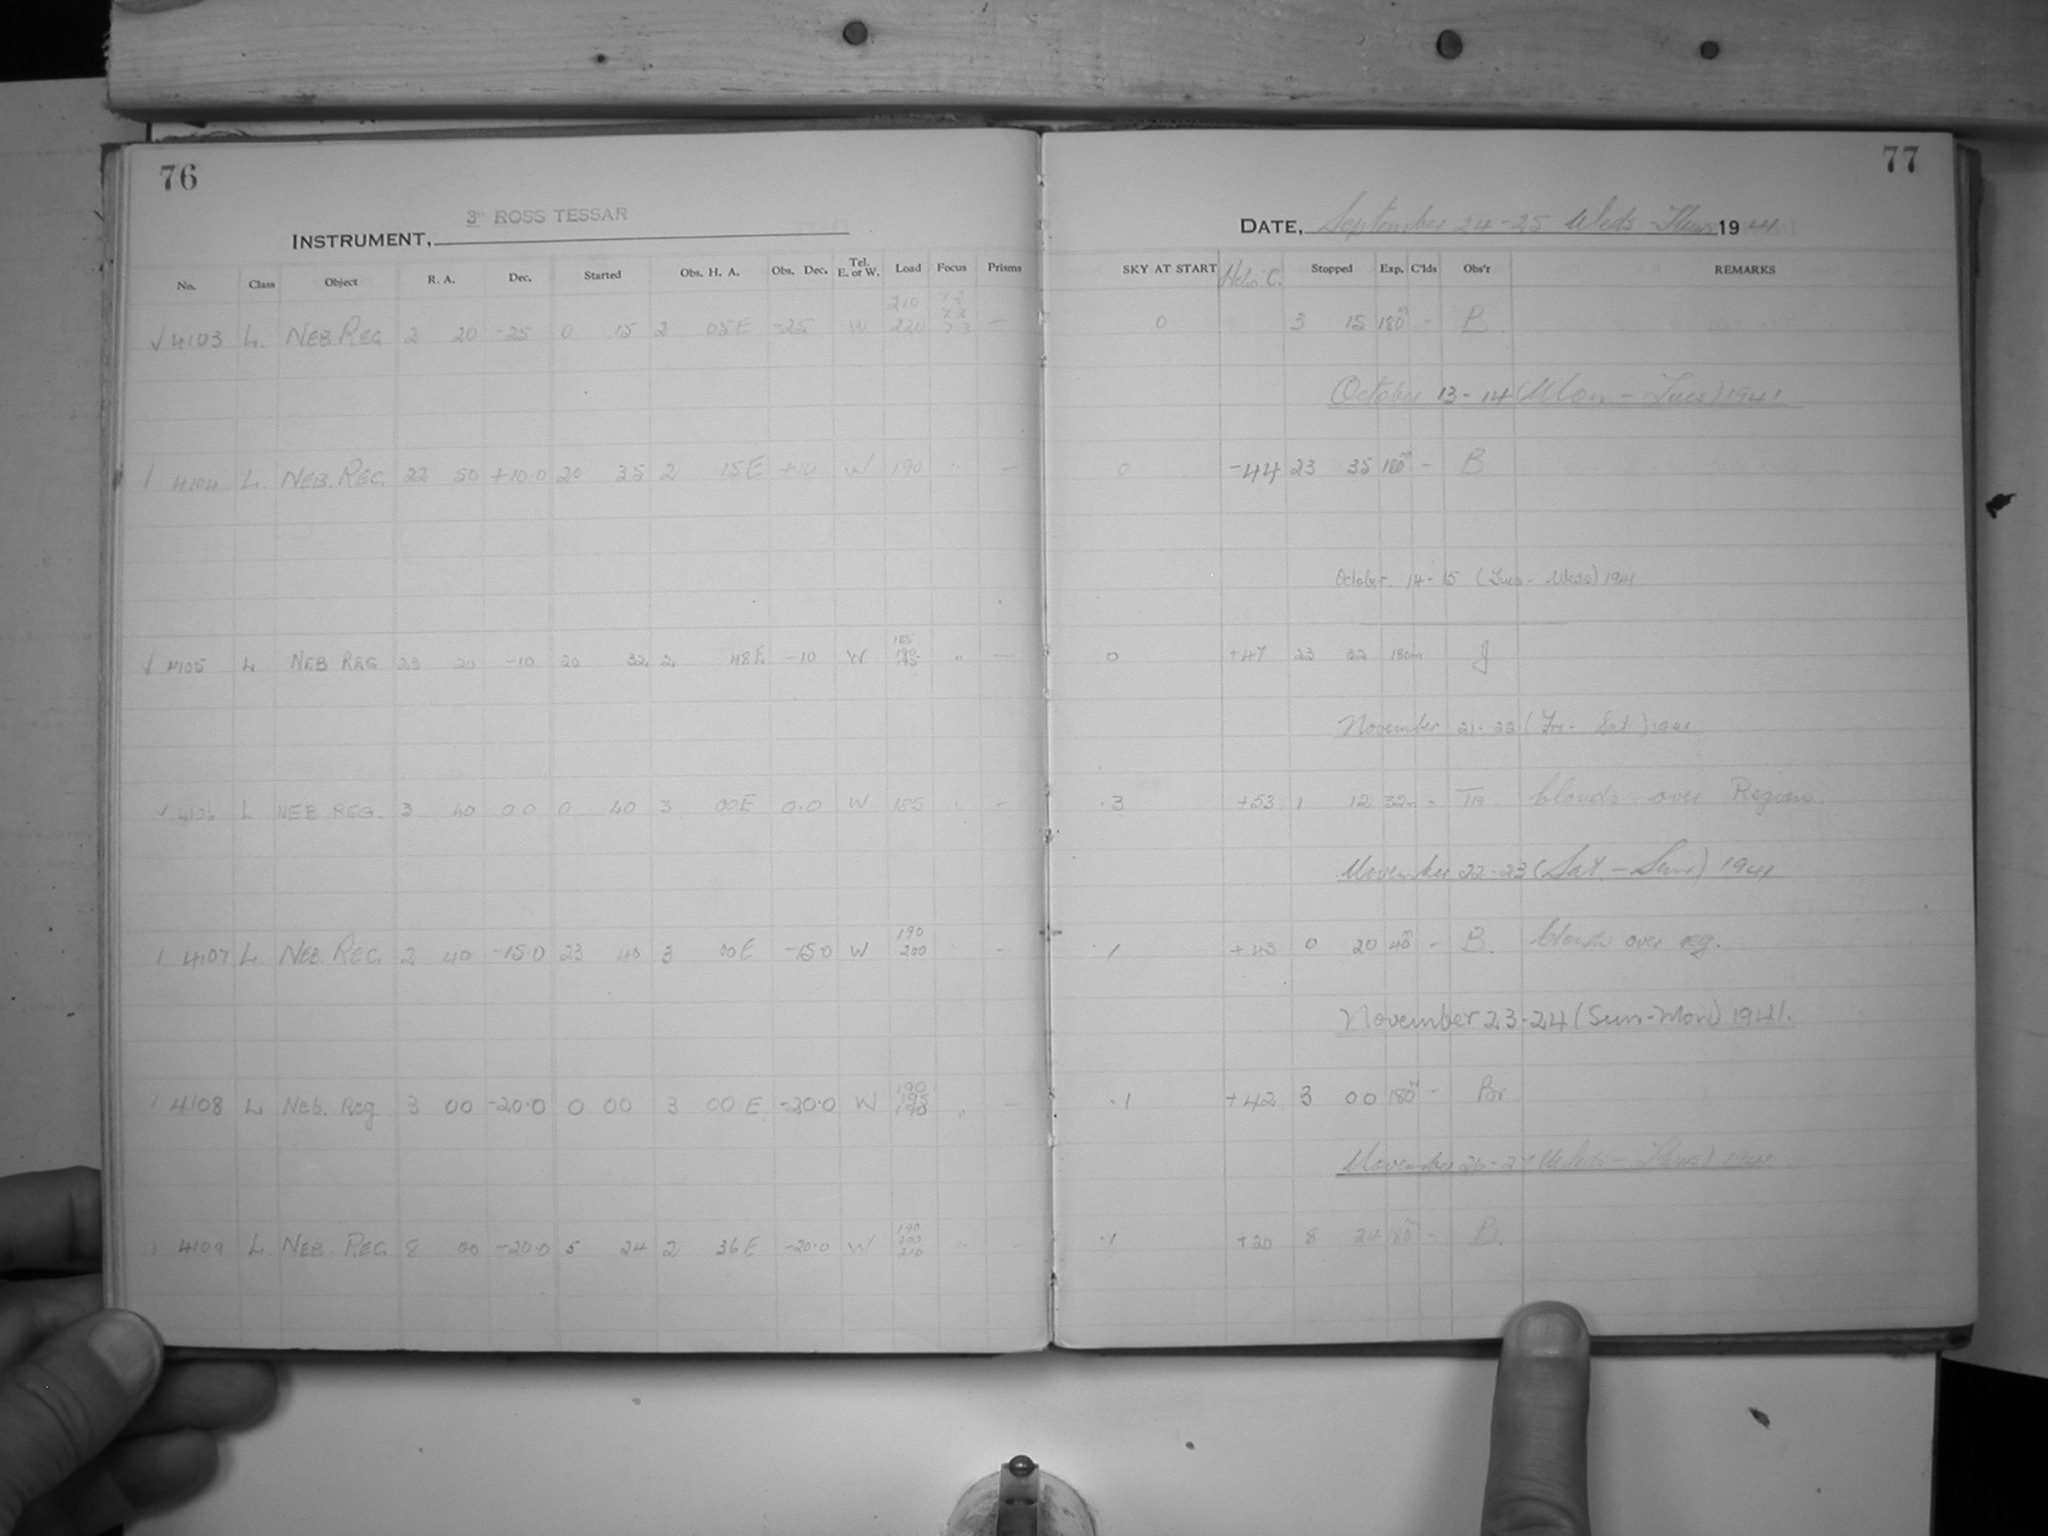 76
77
3" ROSS TESSAR
INSTRUMENT,
DATE, September 24-25 Weds-Thurs 1941
No. Class Object R. A. Dec. Started Obs. H. A. Obs. Dec. Tel. E. or W. Load Focus Prisms SKY AT START Stopped Exp. C'lds Obs'r REMARKS
210
√ 4103 L. NEB REG 2 20 -25 0 15 2 05E -25 W 220 7.3 — 0 3 15 180m - B.
October 13-14 (Mon - Tues) 1941
4104 L. NEB. REG. 22 50 +10.0 20 35 2 15E +10 W 190 " — 0 -44 23 35 180m - B
October 14-15 (Tues - Weds) 1941
185
190
√ 4105 L NEB REG 23 20 -10 20 32 2 48E -10 W 195 " — 0 +47 23 32 180m J
November 21-22 (Fri - Sat) 1941
√ 4106 L NEB REG. 3 40 0 0 0 40 3 00E 0.0 W 185 " — .3 +53 1 12 32m - TB Clouds over Region
November 22-23 (Sat - Sun) 1941
190
4107 L. NEB. REG. 2 40 -15.0 23 40 3 00E -15.0 W 200 — .1 +43 0 20 40m - B. Clouds over reg.
November 23-24 (Sun-Mon) 1941.
190
195
4108 L Neb. Reg 3 00 -20.0 0 00 3 00 E -20.0 W 190 " — .1 +42 3 00 180m - Br
November 26-27 (Weds - Thurs) 1941
190
200
4109 L. NEB. REG. 8 00 -20.0 5 24 2 36E -20.0 W 210 " .1 +20 8 24 180m - B.